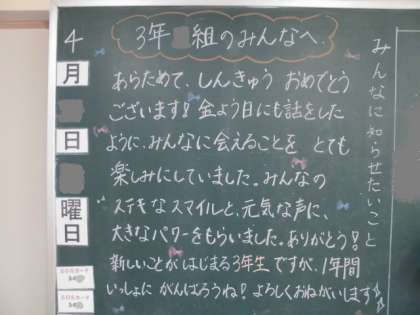 3年 組のみんなへ
あらためて、しんきゅう おめでとう
ございます!! 金よう日にも話をした
ように、みんなに会えることを とても
楽しみにしていました。みんなの
ステキなスマイルと、元気な声に、
大きなパワーをもらいました。ありがとう!!
新しいことがはじまる3年生ですが、1年間
いっしょに がんばろうね! よろしくおねがいします
みんなに知らせたいこと
4
月
日
曜
日